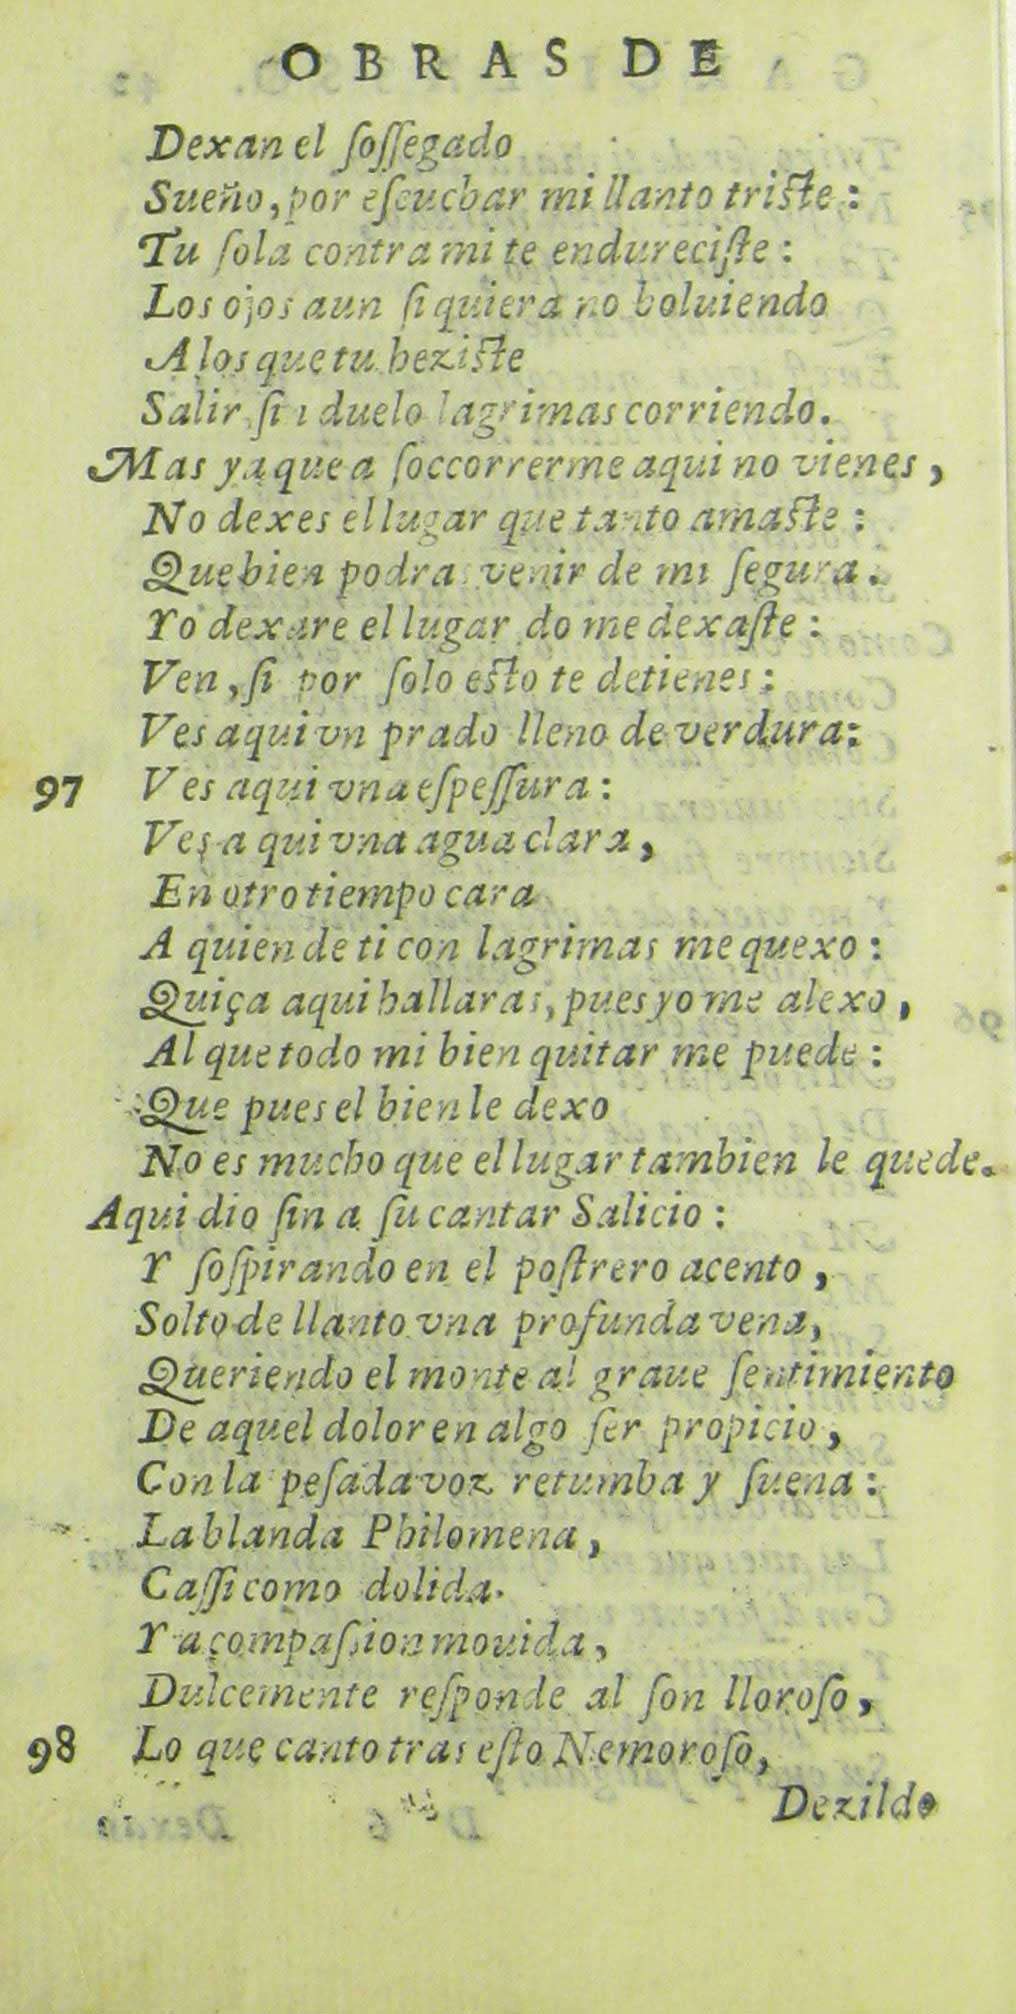 OBRAS DE
Dexan el ſoſſegado
Sueño, por eſcuchar mi llanto triſte:
Tu ſola contra mi te endureciſte:
Los ojos aun ſi quiera no boluiendo
A los que tu heziſte
Salir ſin duelo lagrimas corriendo.
Mas ya que a ſoccorrerme aqui no vienes,
No dexes el lugar que tanto amaſte:
Que bien podras venir de mi ſegura.
Yo dexare el lugar do me dexaſte:
Ven, ſi por ſolo eſto te detienes:
Ves aqui vn prado lleno de verdura:
97 Ves aqui vna eſpeſſura:
Ves a qui vna agua clara,
En otro tiempo cara
A quien de ti con lagrimas me quexo:
Quiça aqui hallaras, pues yo me alexo,
Al que todo mi bien quitar me puede:
Que pues el bien le dexo
No es mucho que el lugar tambien le quede.
Aqui dio fin a ſu cantar Salicio:
Y ſoſpirando en el poſtrero acento,
Solto de llanto vna profunda vena,
Queriendo el monte al graue ſentimiento
De aquel dolor en algo ſer propicio,
Con la peſada voz retumba y ſuena:
La blanda Philomena,
Caſſi como dolida.
Y a compaſsion mouida,
Dulcemente reſponde al ſon lloroſo,
98 Lo que canto tras eſto Nemoroſo,
Dezildo